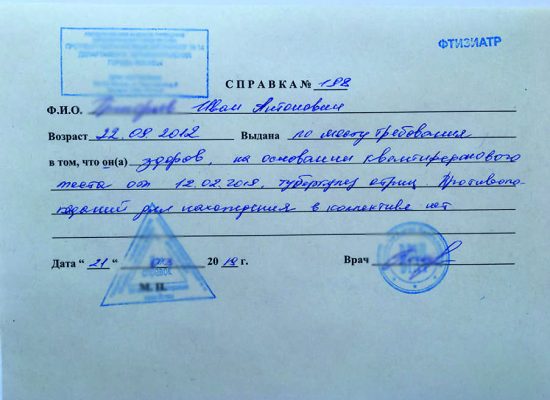 ФТИЗИАТР
СПРАВКА № 188
Ф.И.О. Иван Антонович
Возраст 22.08.2012 Выдана по месту требования
в том, что он(а) здоров, на основании квантиферонового
теста от 12.02.2018, туберкулез отриц. Противопо-
казаний для нахождения в коллективе нет
Дата “ 21 ” 03 20 18 г. Врач
М. П.